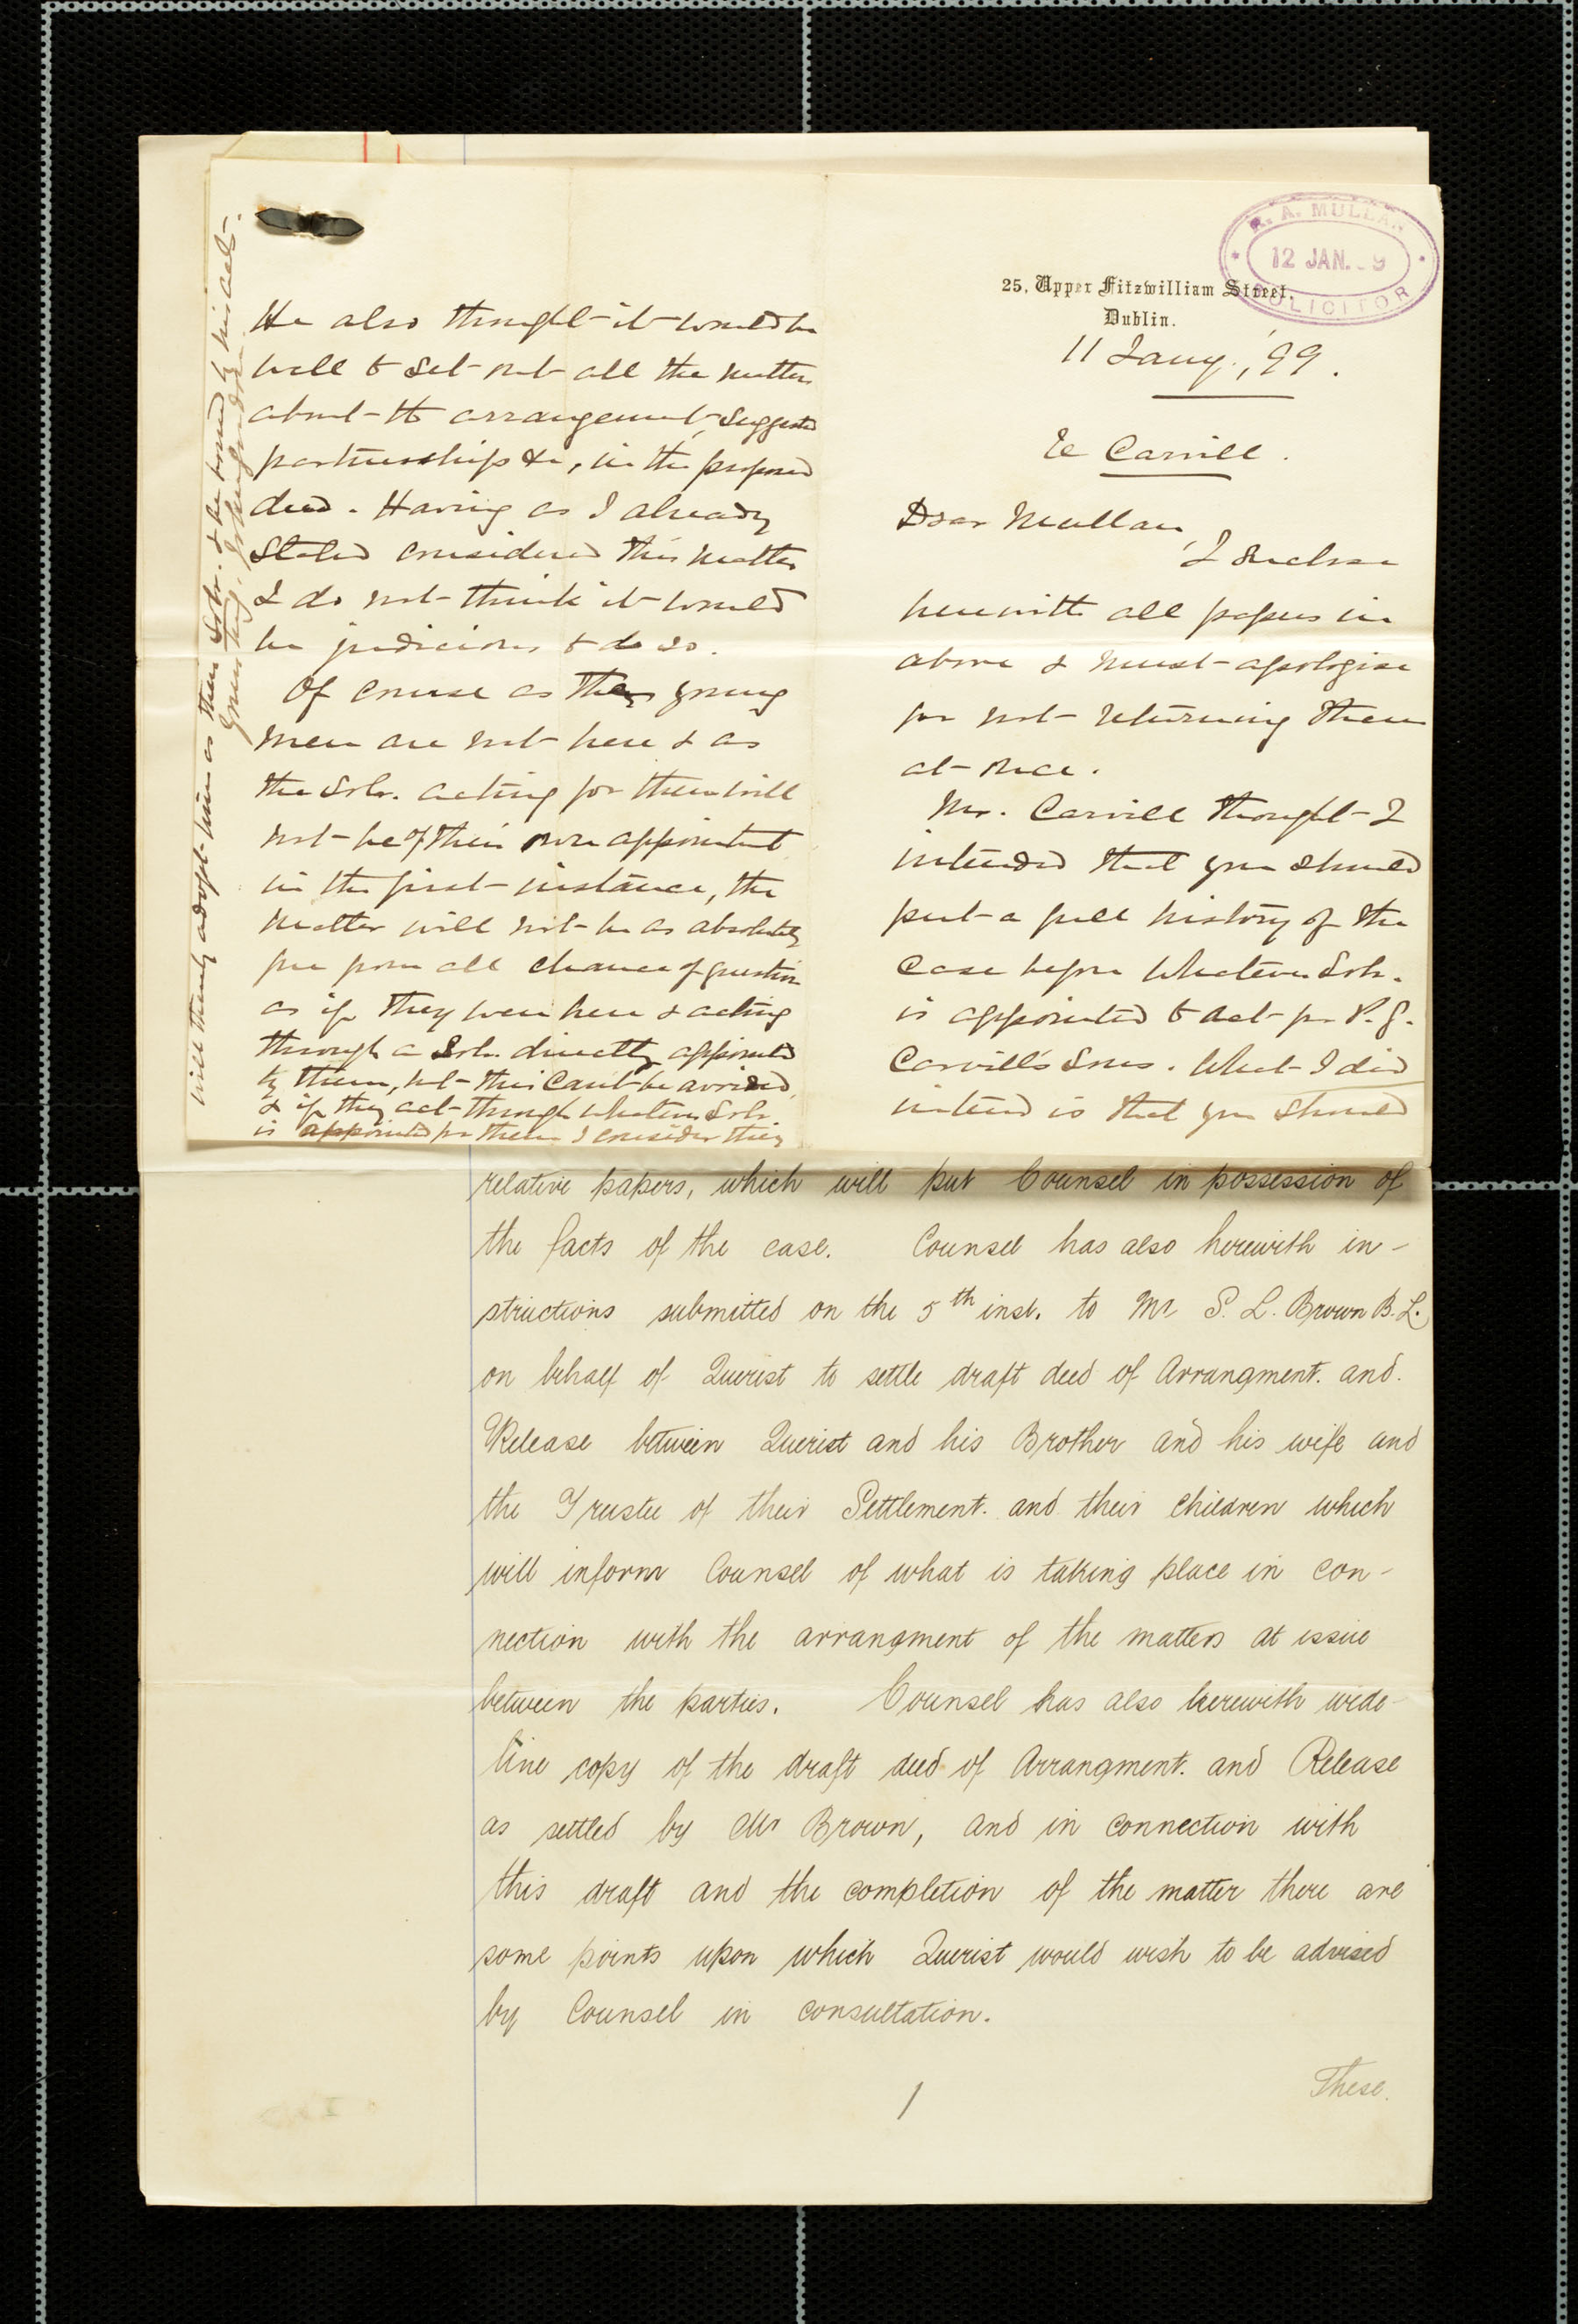 R. A. MULLAN
12 JAN. 9
SOLICITOR
25, Upper Fitzwilliam Street,
Dublin.
11 Jany., 99.
Re Carvill.
Dear Mullan,
I enclose
herewith all papers in
above & must apologise
for not returning them
at once.
Mr. Carvill thought I
intended that you should
put a full history of the
case before whatever Solr.
is appointed to act for P. J.
Carvill's Sons. What I did
intend is that you should
He also thought it would be
well to set out all the matters
about the arrangement, suggested
partnership &c, in the proposed
deed. Having as I already
stated considered this matter
I do not think it would
be judicious to do so.
Of course as these young
men are not here & as
the Solr. acting for them will
not be of their own appointment
in the first instance, the
matter will not be as absolutely
free from all chance of question
as if they were here & acting
through a Solr. directly appointed
by them, but this can't be avoided,
& if they act through whatever Solr.
is appointed for them I consider they
will thereby adopt him as their Solr. & be bound by his acts.
relative papers, which will put Counsel in possession of
the facts of the case. Counsel has also herewith in-
structions submitted on the 5th inst. to Mr S. L. Brown B.L.
on behalf of Querist to settle draft deed of Arrangment. and.
Release between Querist and his Brother and his wife and
the Trustee of their Settlement. and their children which
will inform Counsel of what is taking place in con-
nection with the arrangment of the matters at issue
between the parties. Counsel has also herewith wide-
line copy of the draft deed of Arrangment. and Release
as settled by Mr Brown, and in connection with
this draft and the completion of the matter there are
some points upon which Querist would wish to be advised
by Counsel in consultation.
1
These.